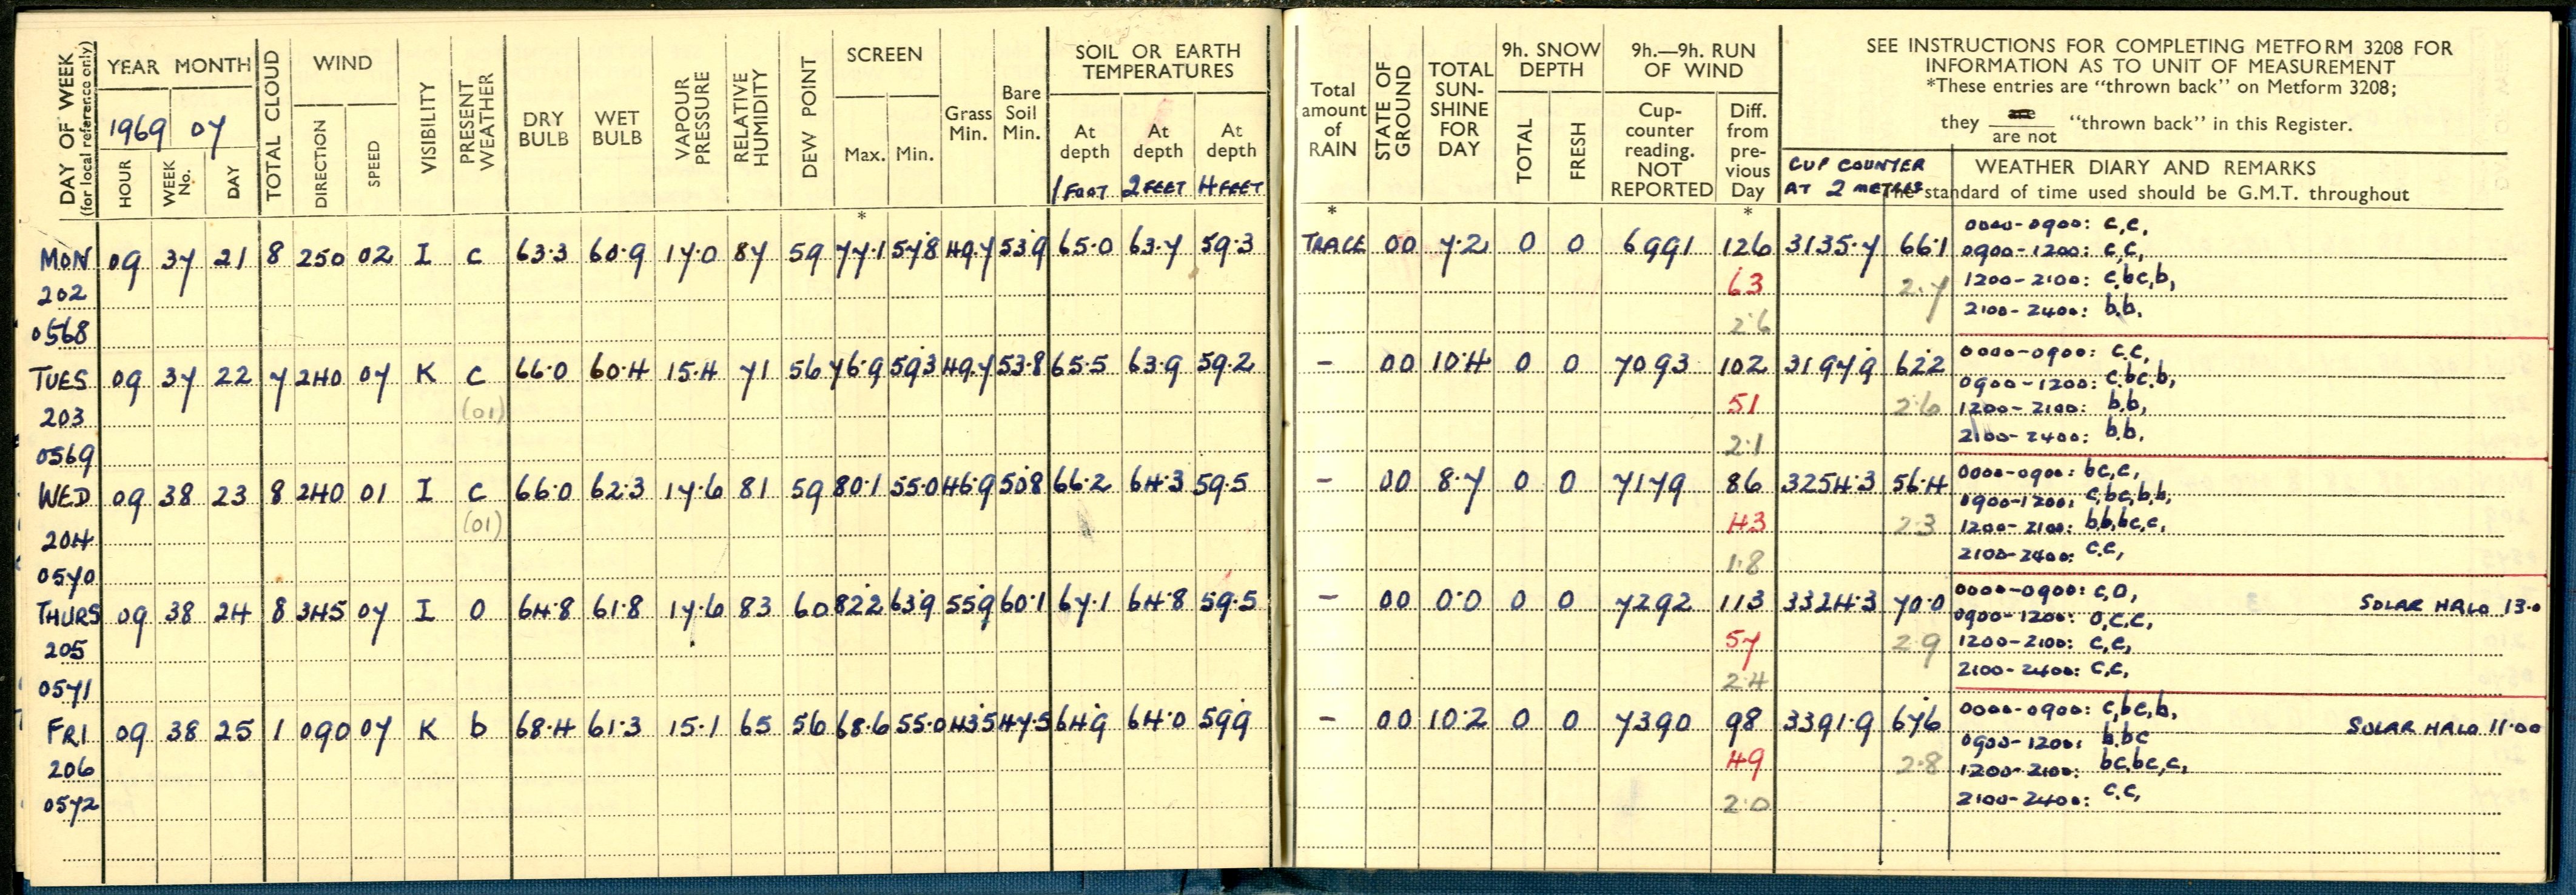 DAY OF WEEK
(for local reference only)
YEAR MONTH
1969 07
HOUR
WEEK No.
DAY
TOTAL CLOUD
WIND
DIRECTION
SPEED
VISIBILITY
PRESENT WEATHER
DRY BULB
WET BULB
VAPOUR PRESSURE
RELATIVE HUMIDITY
DEW POINT
SCREEN
Max.
Min.
*
Grass Min.
Bare Soil Min.
SOIL OR EARTH TEMPERATURES
At depth 1 FOOT
At depth 2 FEET
At depth 4 FEET
MON 09 37 21 8 250 02 I c 63.3 60.9 17.0 87 59 77.1 57.8 49.7 53.9 65.0 63.7 59.3
202
0568
TUES 09 37 22 7 240 07 K c 66.0 60.4 15.4 71 56 76.9 59.3 49.7 53.8 65.5 63.9 59.2
(01)
203
0569
WED 09 38 23 8 240 01 I c 66.0 62.3 17.6 81 59 80.1 55.0 46.9 50.8 66.2 64.3 59.5
(01)
204
0570
THURS 09 38 24 8 345 07 I 0 64.8 61.8 17.6 83 60 82.2 63.9 55.9 60.1 67.1 64.8 59.5
205
0571
FRI 09 38 25 1 090 07 K b 68.4 61.3 15.1 65 56 68.6 55.0 43.5 47.5 64.9 64.0 59.9
206
0572
Total amount of RAIN
*
STATE OF GROUND
TOTAL SUN-SHINE FOR DAY
9h. SNOW DEPTH
TOTAL
FRESH
9h.—9h. RUN OF WIND
Cup-counter reading. NOT REPORTED
Diff. from pre-vious Day
*
SEE INSTRUCTIONS FOR COMPLETING METFORM 3208 FOR
INFORMATION AS TO UNIT OF MEASUREMENT
*These entries are "thrown back" on Metform 3208;
they are / are not "thrown back" in this Register.
CUP COUNTER
AT 2 METRES
WEATHER DIARY AND REMARKS
The standard of time used should be G.M.T. throughout
TRACE 00 7.2 0 0 6991 126 3135.7 66.1
63
2.7
2.6
0000-0900: c,c,
0900-1200: c,c,
1200-2100: c,bc,b,
2100-2400: b,b,
– 00 10.4 0 0 7093 102 3197.9 62.2
51
2.6
2.1
0000-0900: c,c,
0900-1200: c,bc,b,
1200-2100: b,b,
2100-2400: b,b,
– 00 8.7 0 0 7179 86 3254.3 56.4
43
2.3
1.8
0000-0900: bc,c,
0900-1200: c,bc,b,b,
1200-2100: b,b,bc,c,
2100-2400: c,c,
– 00 0.0 0 0 7292 113 3324.3 70.0
57
2.9
2.4
0000-0900: c,0, SOLAR HALO 13.0
0900-1200: 0,c,c,
1200-2100: c,c,
2100-2400: c,c,
– 00 10.2 0 0 7390 98 3391.9 67.6
49
2.8
2.0
0000-0900: c,bc,b,
0900-1200: b,bc SOLAR HALO 11.00
1200-2100: bc,bc,c,
2100-2400: c,c,